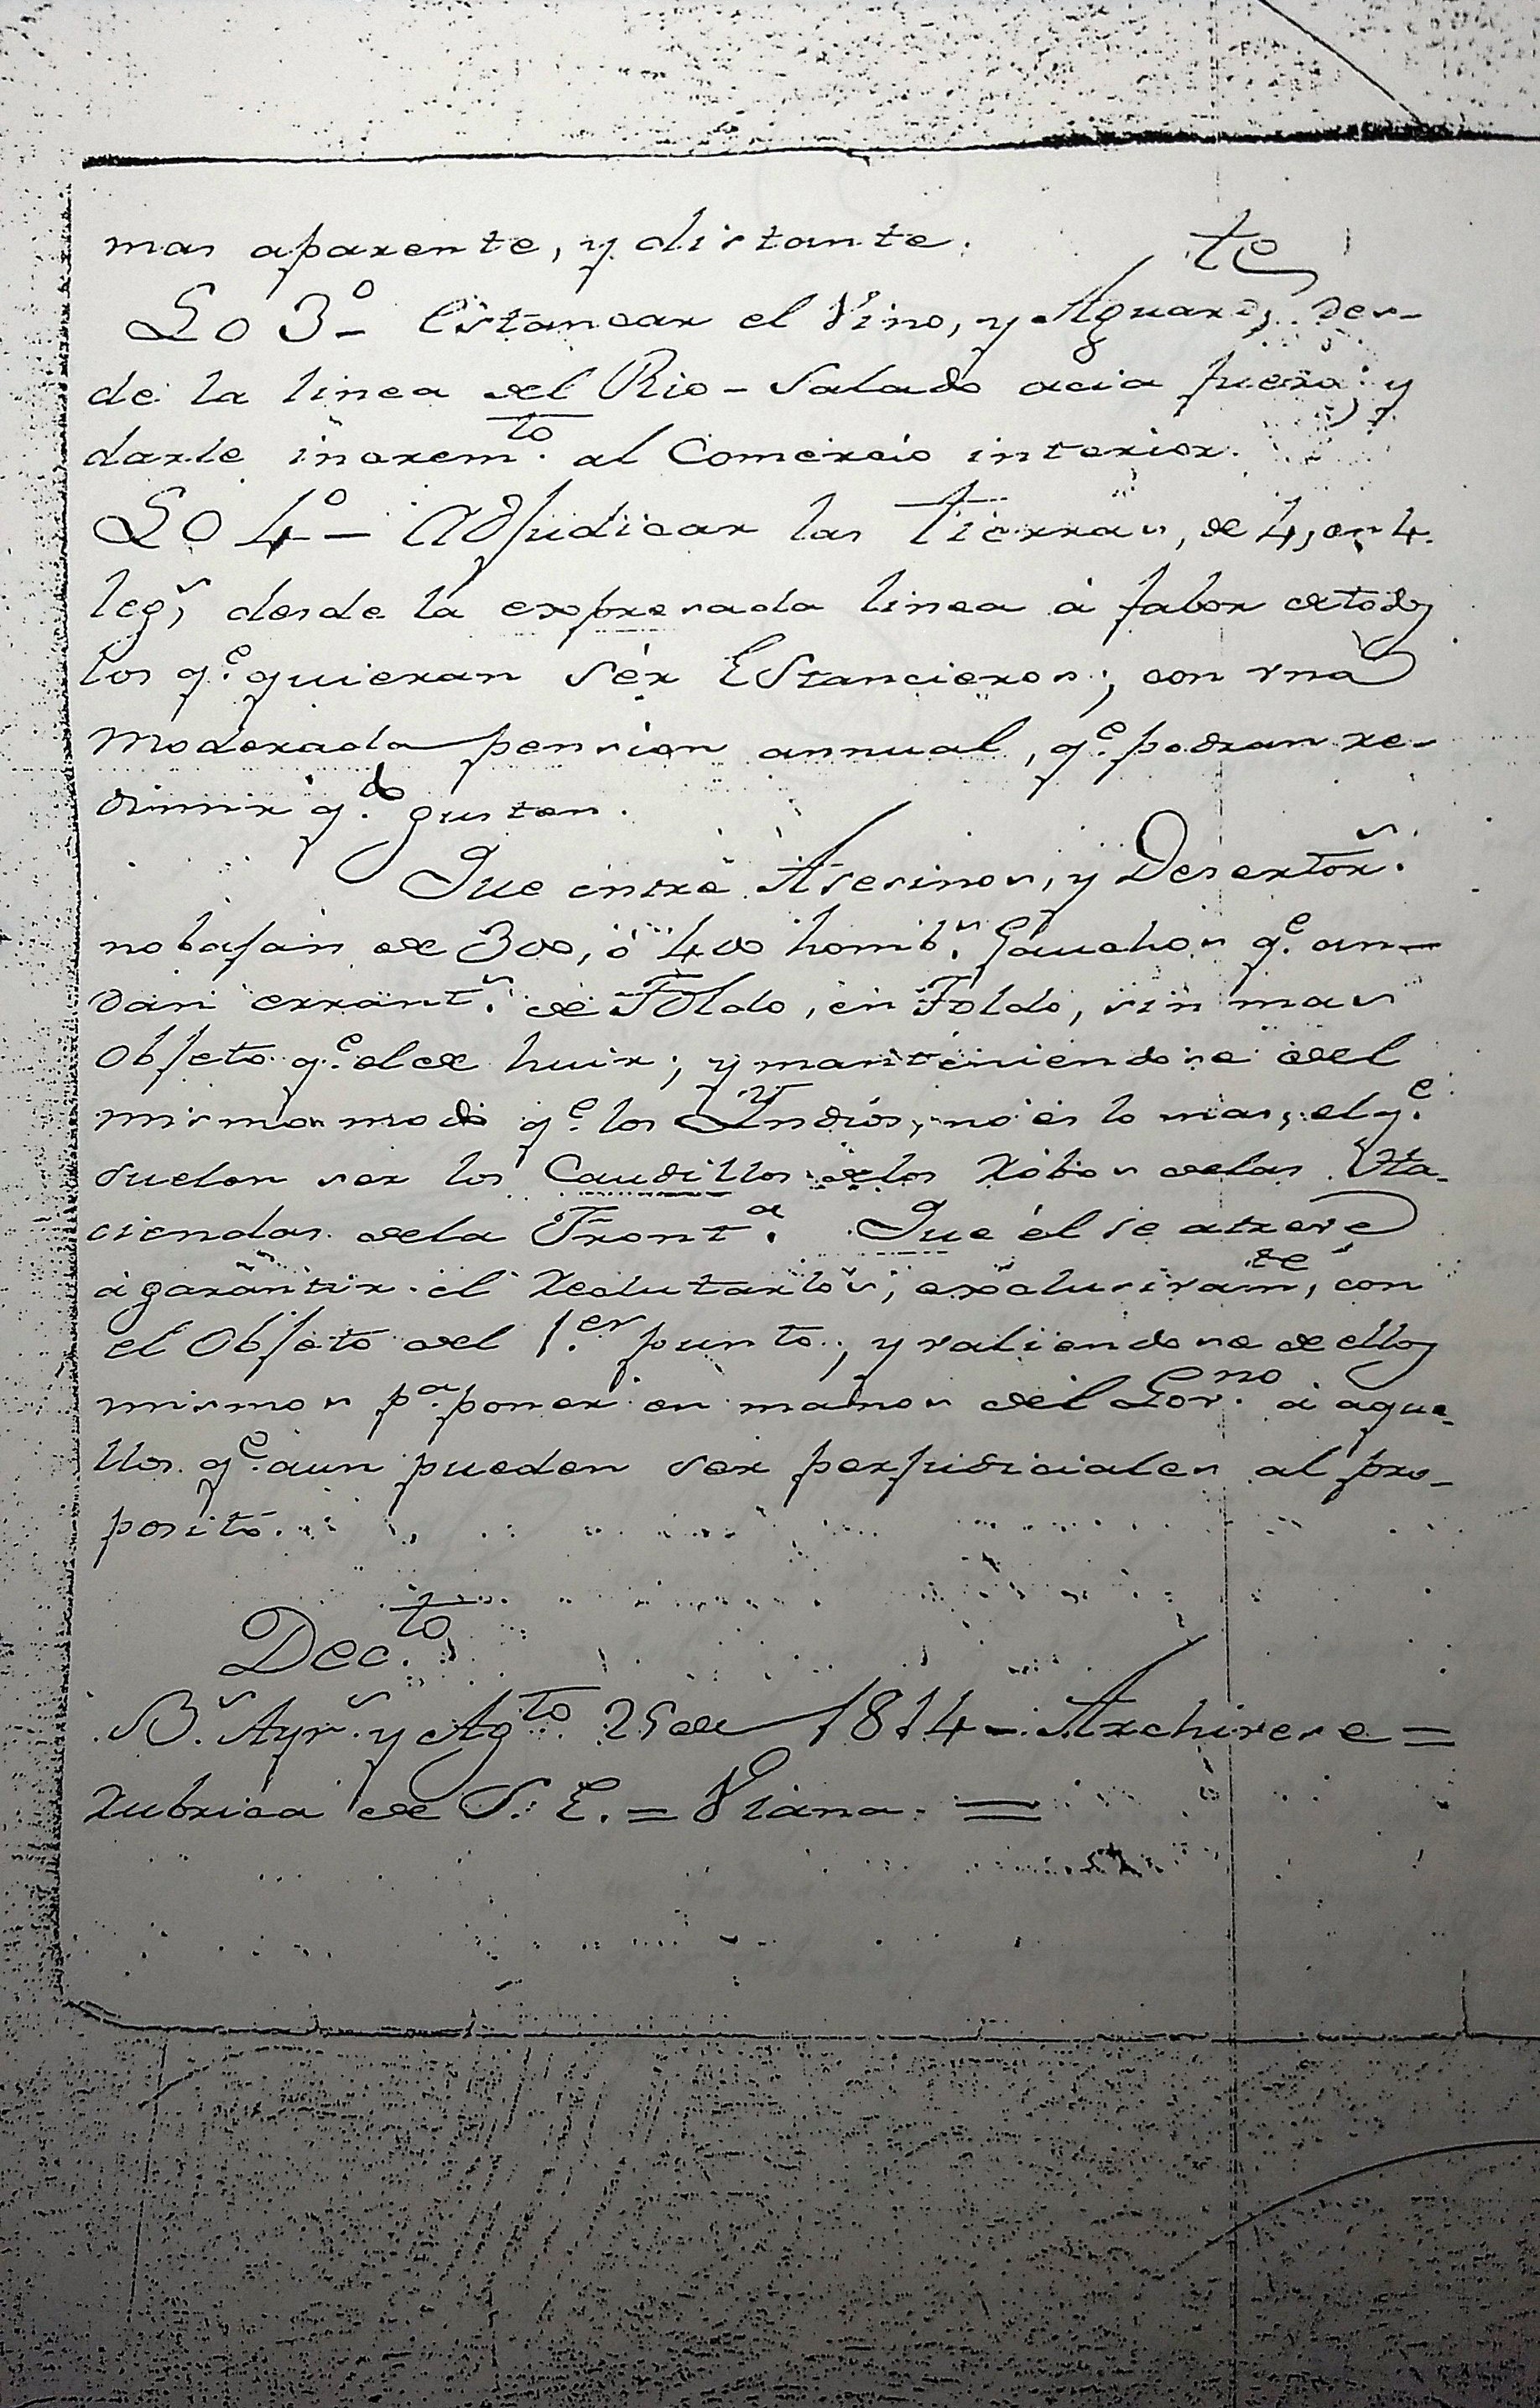 mas aparente, y distante.
Lo 3º Estancar el Vino, y Aguard.te, des-
de la linea del Rio-Salado acia fuera; y
darle increm.to al Comercio interior.
Lo 4º- Adjudicar las Tierras, de 4, en 4.
leg.s desde la expresada linea á fabor de todos
los q.e quieran sér Estancieros; con una
moderada pension annual, q.e podran re-
dimir q.do gusten.
Que entre Asesinos, y Desertor.s
no bajan de 300, ó 400 homb.s Gauchos q.e an-
dan errant.s de Toldo, en Toldo, sin mas
Objeto q.e el de huir; y manteniendose del
mismo modo q.e los Yndios, no es lo mas, el q.e
suelen ser los Caudillos de los robos de las Ha-
ciendas de la Front.a Que él se atreve
á garantir el reclutarlos, exclusivam.te, con
el Objeto del 1.er punto, y valiendose de ellos
mismos p.a poner en manos del Gov.no á aque-
llos q.e aun pueden ser perjudiciales al pro-
posito.
Dec.to
B.s Ayr.s y Ag.to 25 de 1814-Archivese=
rubrica de S. E.=Viana.=